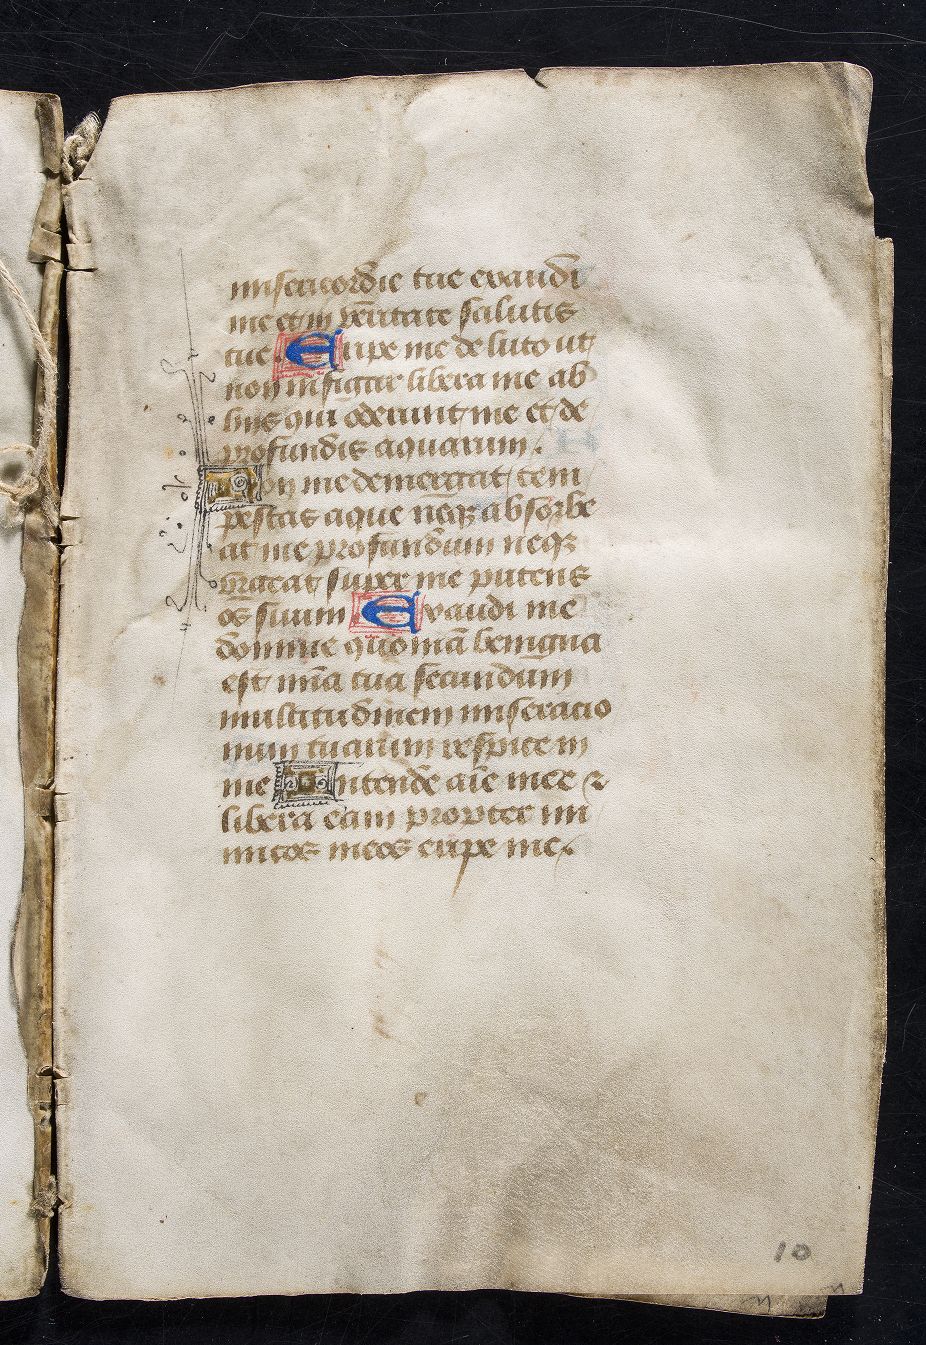 misericordie tue exaudi
me et in v̄itate salutis
tue. Eripe me de luto ut
non infigar libera me ab
hiis qui oderunt me et de
profundis aquarum.
Non me demergat tem
pestas aque neqꝫ absorbe
at me profundum neqꝫ
urgeat super me puteus
os suum Exaudi me
domine quoniā benigna
est mīa tua secundum
multitudinem miseracio
num tuarum respice in
me Intende aīe mee ⁊
libera eam propter ini
micos meos eripe me.
10